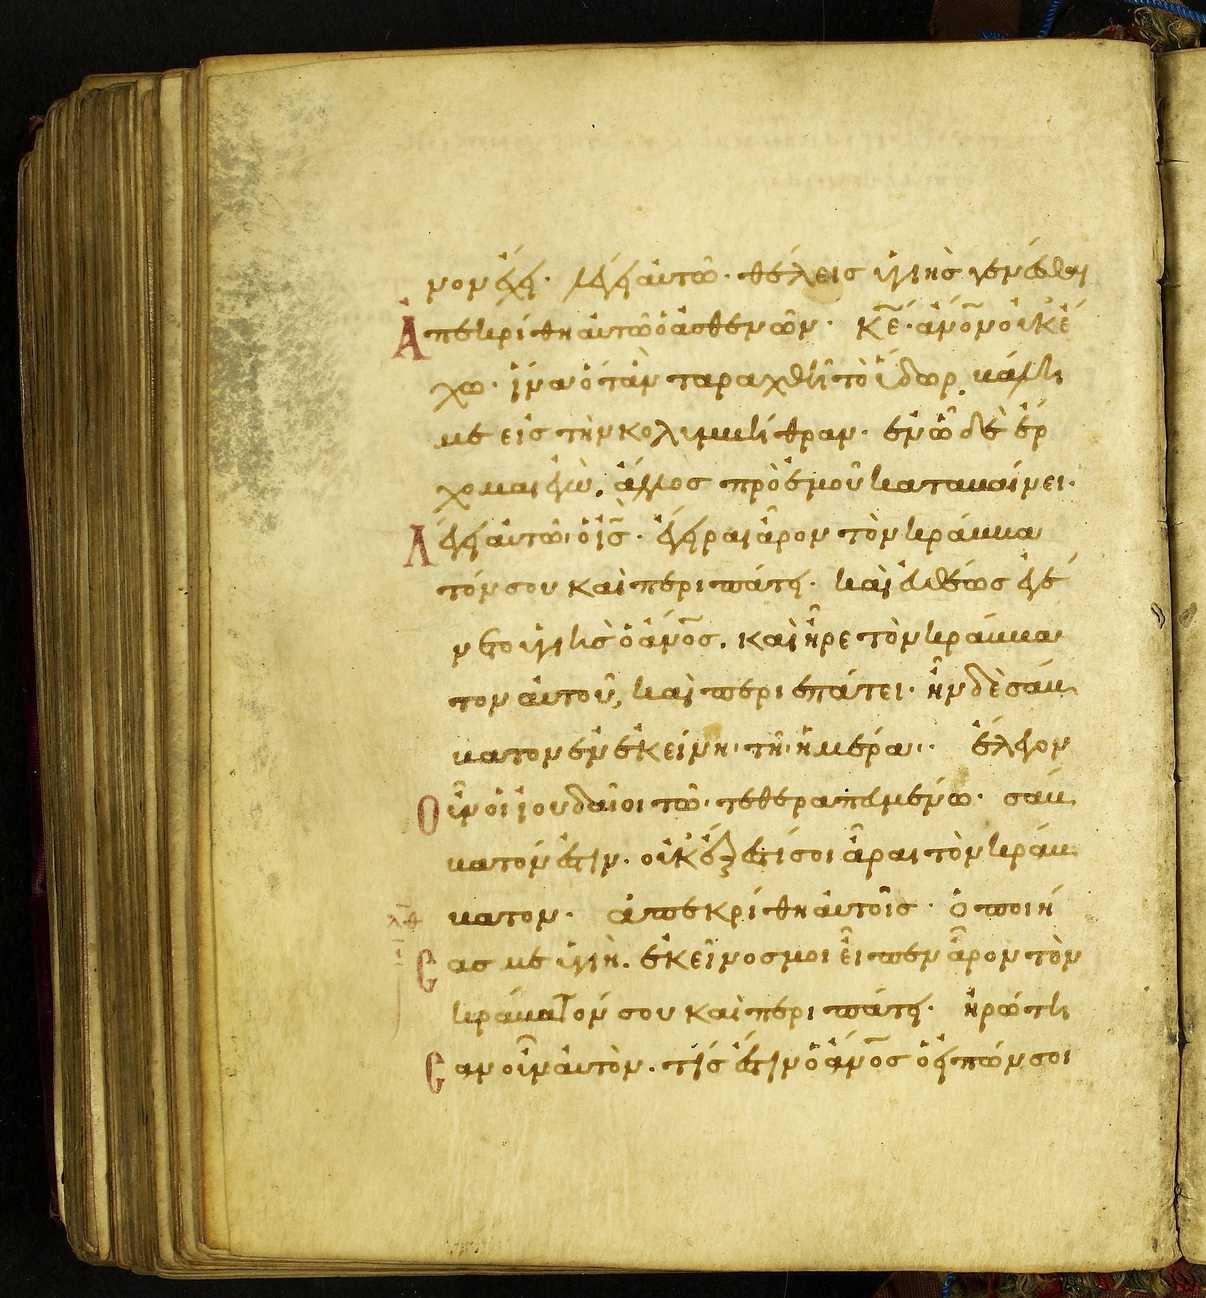 νον ἔχει· λέγει αὐτῶ· θέλεις ὑγιὴς γενέσθαι
Ἀπεκρίθη αὐτῶ ὁ ἀσθενῶν· κ̅ε̅· ἀν̅ο̅ν οὐκ ἔ
χω· ἵνα ὅταν ταραχθῆ τὸ ὕδωρ, βάλη
με εἰς τὴν κολυμβήθραν· ἐν ὧ δὲ ἔρ
χομαι ἐγὼ, ἄλλος πρὸ ἐμοῦ καταβαίνει·
Λέγει αὐτῶ· ὁ ι̅ς̅· ἔγειραι ἆρον τὸν κράββα
τόν σου καὶ περιπάτει· καὶ εὐθέως ἐγέ
νετο ὑγιὴς ὁ ἀν̅ο̅ς. καὶ ἦρε τὸν κράββα
τον αὐτοῦ, καὶ περιεπάτει· ἦν δὲ σάβ
βατον ἐν ἐκείνη τῆ ἡμέρα·· ἔλεγον
Οὖν οἱ ἰουδαῖοι τῶ τεθεραπευμένω· σάβ
βατόν ἐστιν· οὐκ ἔξεστί σοι ἆραι τὸν κράβ
βατον· ἀπεκρίθη αὐτοῖς· ὁ ποιή
Cας με ὑγιῆ. ἐκεῖνος μοι εἶπεν ἆρον τὸν
κράβατόν σου καὶ περιπάτει· ἠρώτη
Cαν οὖν αὐτὸν· τίς ἐστιν ὁ ἀν̅ο̅ς ὁ εἰπών σοι